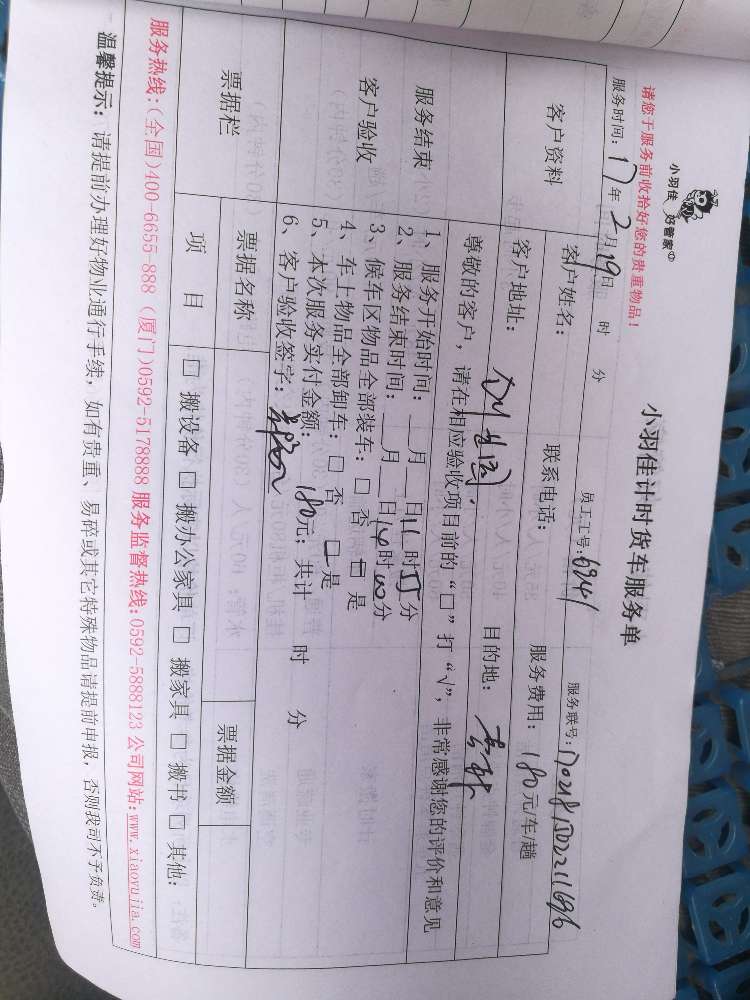 小羽佳 好管家
小羽佳计时货车服务单
请您于服务前收拾好您的贵重物品！
服务时间：17年2月19日 时 分 员工工号：6941 服务联号：
客户资料
客户姓名： 联系电话： 服务费用：180元/车/趟
客户地址： 目的地：
尊敬的客户，请在相应验收项目前的“□”打“√”，非常感谢您的评价和意见
服务结束
客户验收
1、服务开始时间：__月__日11时55分
2、服务结束时间：__月__日14时00分
3、候车区物品全部装车：□ 否 □ 是
4、车上物品全部卸车：□ 否 □ 是
5、本次服务实付金额：180元；共计 时 分
6、客户验收签字：
票据栏
票据名称 票据金额
项 目 □ 搬设备 □ 搬办公家具 □ 搬家具 □ 搬书 □ 其他：
服务热线：(全国)400-6655-888 (厦门)0592-5178888 服务监督热线：0592-5888123 公司网站：www.xiaoyujia.com
温馨提示：请提前办理好物业通行手续，如有贵重、易碎或其它特殊物品请提前申报，否则我司不予负责。